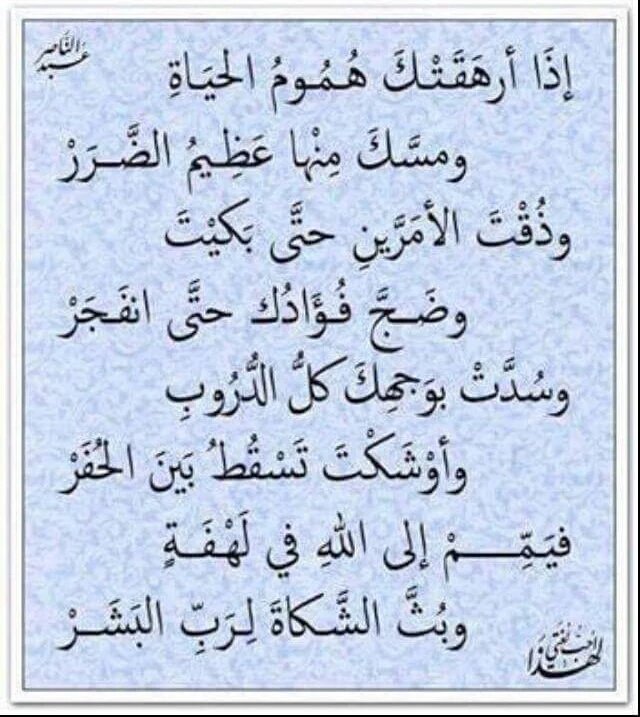 عبد الناصر
إذَا أرهَقَتْكَ هُمُومُ الحيَاةِ
ومسَّكَ مِنْها عَظِيمُ الضَّرَرْ
وذُقْتَ الأمَرَّينِ حتَّى بَكيْتَ
وضَجَّ فُؤَادُك حتَّى انفَجَرْ
وسُدَّتْ بوَجهِكَ كلُّ الدُّرُوبِ
وأوْشَكْتَ تَسْقُطُ بَينَ الحُفَرْ
فيَمِّمْ إلى اللهِ في لَهْفَةٍ
وبُثَّ الشَّكاةَ لِرَبِّ البَشَرْ
لهذا أحب لغتي